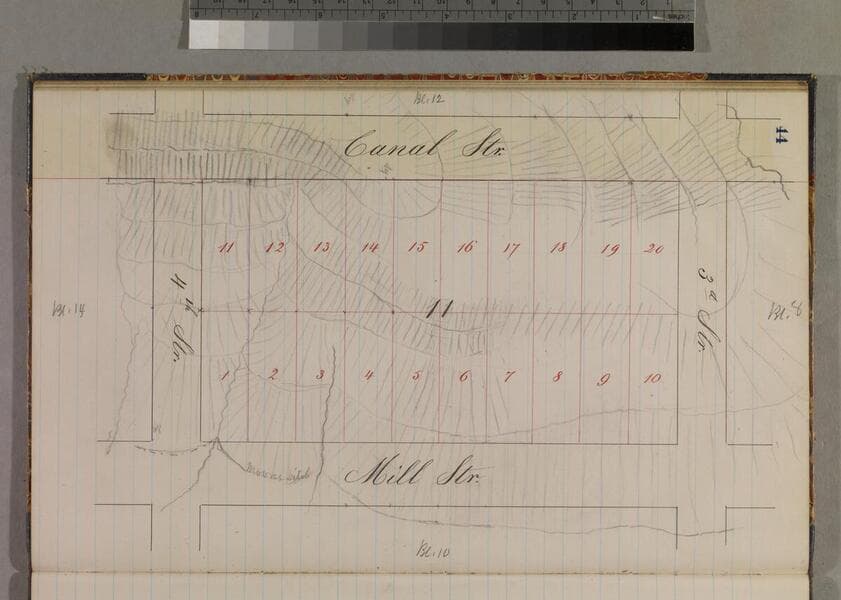 Bl. 12
Canal Str.
11
11 12 13 14 15 16 17 18 19 20
4th Str.
3d Str.
Bl. 14
11
Bl. 8
1 2 3 4 5 6 7 8 9 10
Mill Str.
Bl. 10